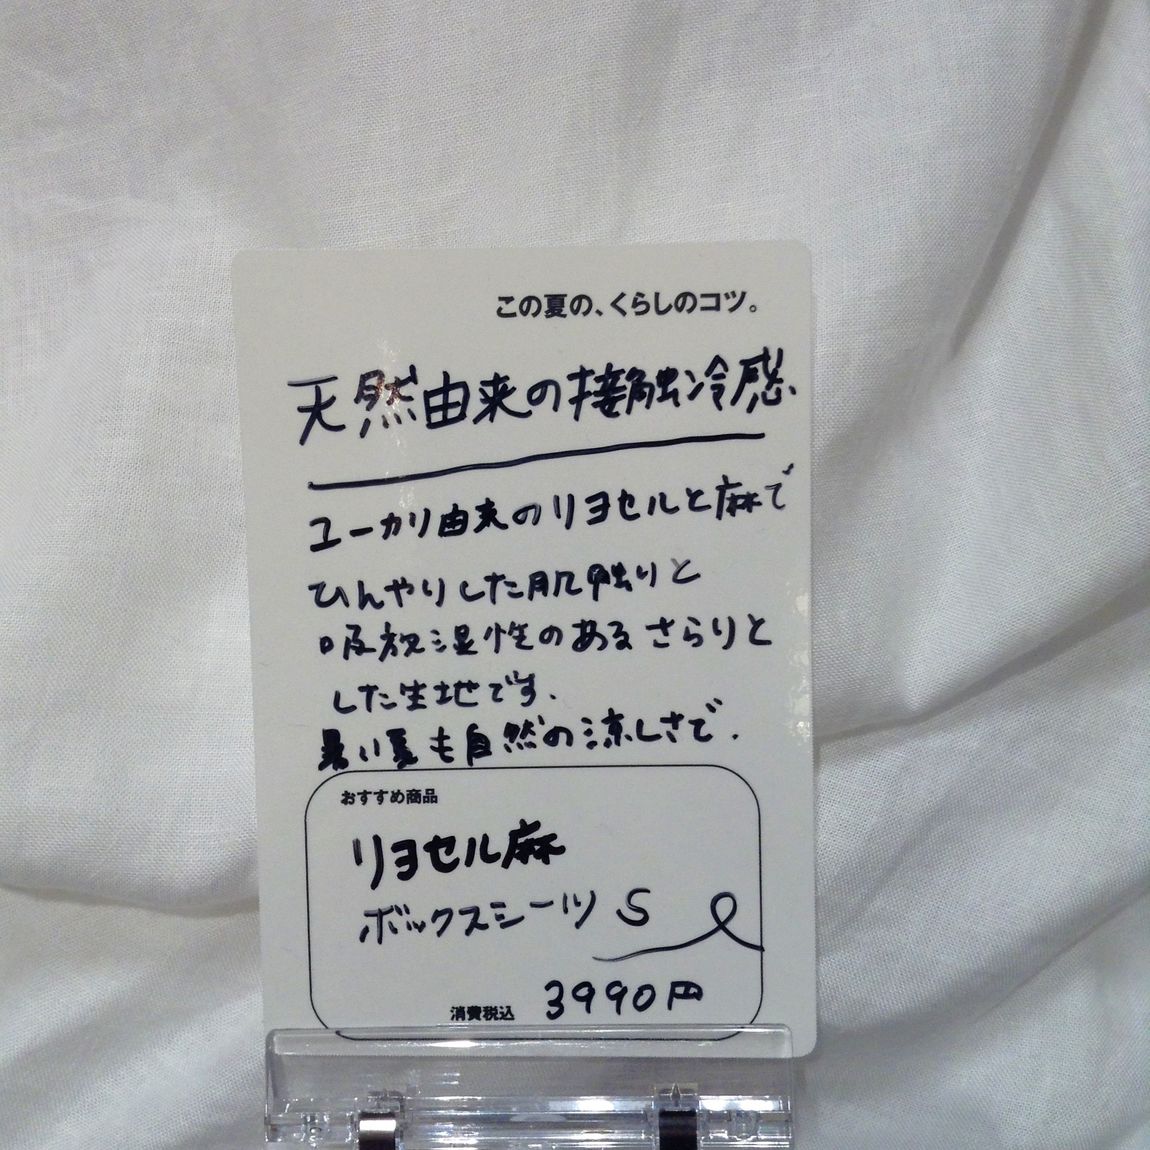 この夏の、くらしのコツ。
天然由来の接触冷感
ユーカリ由来のリヨセルと麻で
ひんやりした肌触りと
吸放湿性のあるさらりと
した生地です.
暑い夏も自然の涼しさで.
おすすめ商品
リヨセル麻
ボックスシーツ S
消費税込 3990円